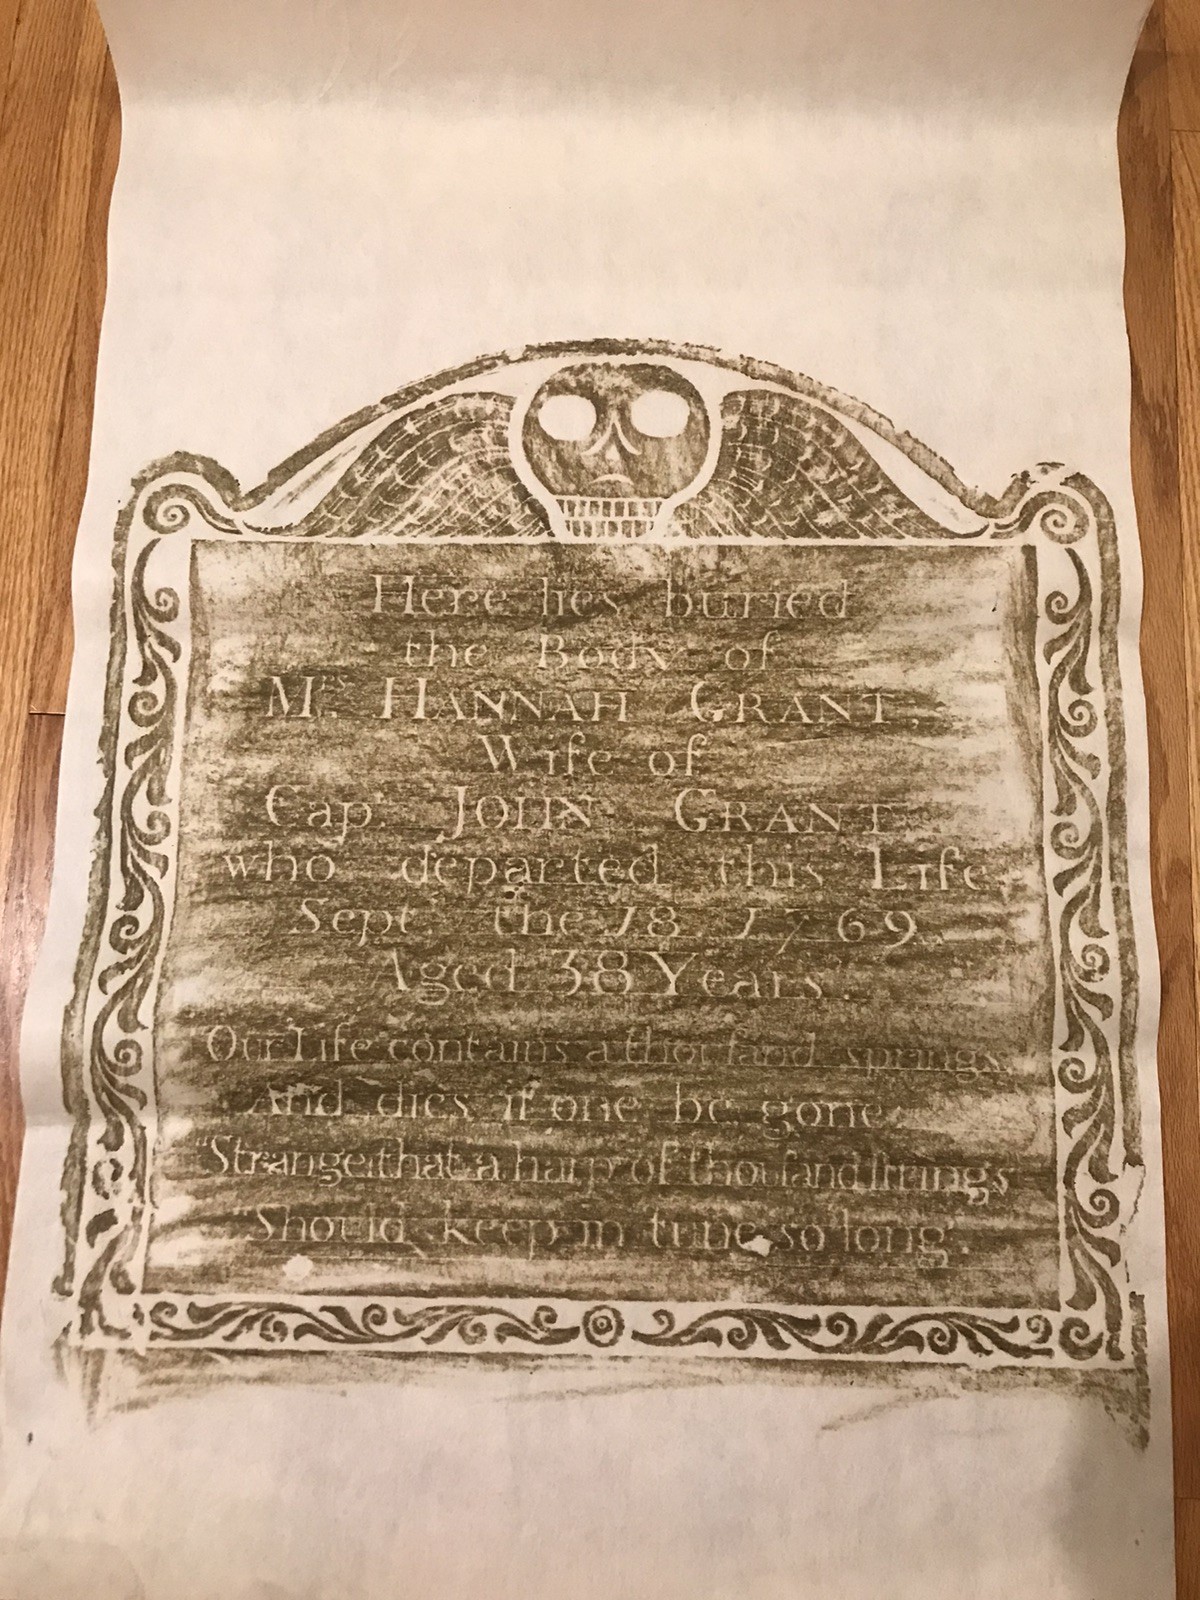 Here lies buried
the Body of
Mrs HANNAH GRANT,
Wife of
Capt. JOHN GRANT
who departed this Life
Sept. the 18, 1769
Aged 38 Years.
Our Life contains a thouſand springs
And dies if one be gone
"Strange that a harp of thouſand ſtrings
"Should keep in tune so long.